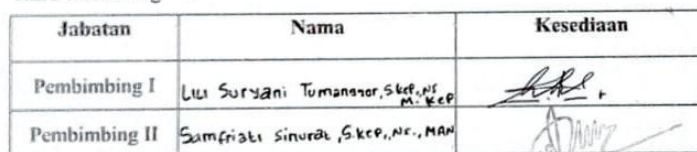 Jabatan Nama Kesediaan
Pembimbing I Lili Suryani Tumanggor, S.kep, Ns
M. Kep
Pembimbing II Samfriati Sinurat, S.Kep., Ns., MAN